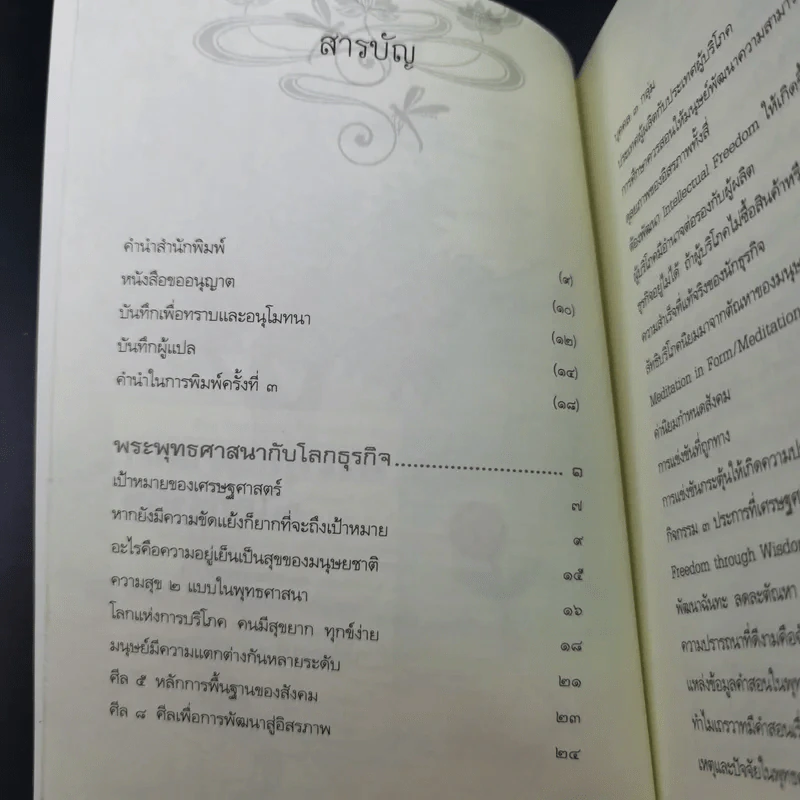 สารบัญ
คำนำสำนักพิมพ์ (๙)
หนังสือขออนุญาต (๑๐)
บันทึกเพื่อทราบและอนุโมทนา (๑๒)
บันทึกผู้แปล (๑๔)
คำนำในการพิมพ์ครั้งที่ ๓ (๑๘)
พระพุทธศาสนากับโลกธุรกิจ ๑
เป้าหมายของเศรษฐศาสตร์ ๗
หากยังมีความขัดแย้งก็ยากที่จะถึงเป้าหมาย ๙
อะไรคือความอยู่เย็นเป็นสุขของมนุษยชาติ ๑๕
ความสุข ๒ แบบในพุทธศาสนา ๑๖
โลกแห่งการบริโภค คนมีสุขยาก ทุกข์ง่าย ๑๘
มนุษย์มีความแตกต่างกันหลายระดับ ๒๑
ศีล ๕ หลักการพื้นฐานของสังคม ๒๓
ศีล ๘ ศีลเพื่อการพัฒนาสู่อิสรภาพ ๒๔
บุคคล ๓ กลุ่ม
ประเทศผู้ผลิตกับประเทศผู้บริโภค
การศึกษาควรสอนให้มนุษย์พัฒนาความสามาร
ดุลยภาพของอิสรภาพทั้งสี่
ต้องพัฒนา Intellectual Freedom ให้เกิดขึ้
ผู้บริโภคมีอำนาจต่อรองกับผู้ผลิต
ธุรกิจอยู่ไม่ได้ ถ้าผู้บริโภคไม่ซื้อสินค้าหรื
ความสำเร็จที่แท้จริงของนักธุรกิจ
ลัทธิบริโภคนิยมมาจากตัณหาของมนุษ
Meditation in Form/Meditation
ค่านิยมกำหนดสังคม
การแข่งขันที่ถูกทาง
การแข่งขันกระตุ้นให้เกิดความป
กิจกรรม ๓ ประการที่เศรษฐศ
Freedom through Wisdo
พัฒนาฉันทะ ลดละตัณหา
ความปรารถนาที่ดีงามคือฉั
แหล่งข้อมูลคำสอนในพุท
ทำไมเถรวาทมีคำสอนเรื่
เหตุและปัจจัยในพุทธ